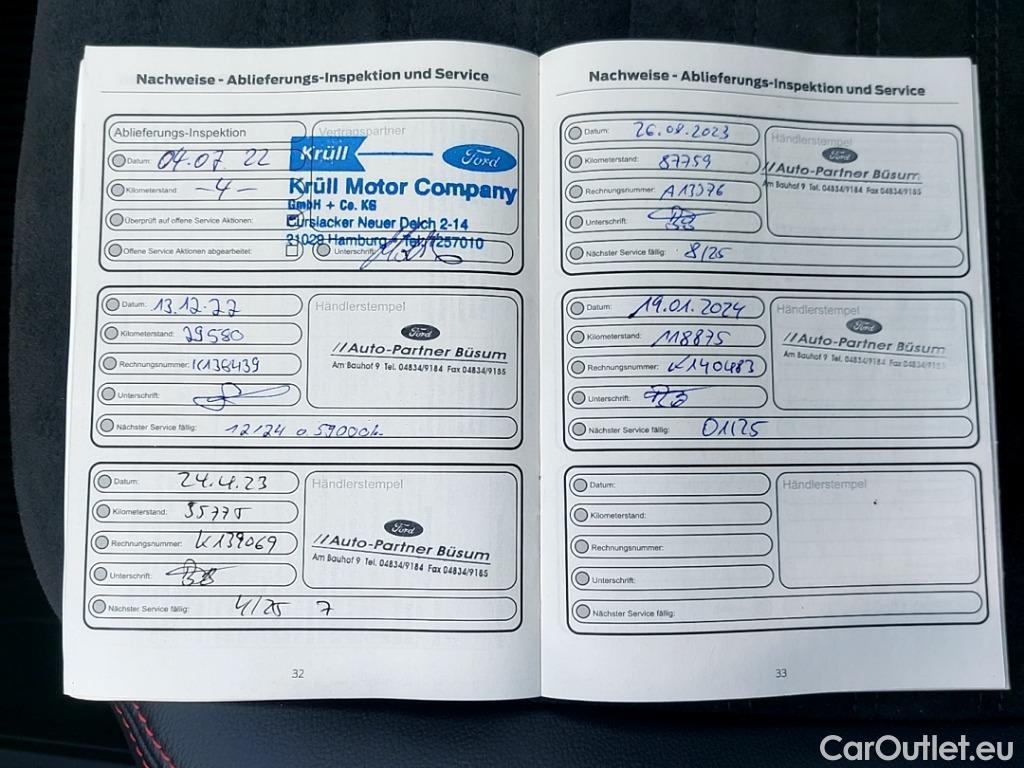 Nachweise - Ablieferungs-Inspektion und Service
Ablieferungs-Inspektion
Vertragspartner
Datum: 04.07.22
Kilometerstand: -4-
Überprüft auf offene Service Aktionen:
Offene Service Aktionen abgearbeitet:
Krüll Ford
Krüll Motor Company
GmbH + Co. KG
Curslacker Neuer Deich 2-14
21029 Hamburg - Tel. 7257010
Unterschrift:
Datum: 13.12.22
Kilometerstand: 29580
Rechnungsnummer: K138439
Unterschrift:
Nächster Service fällig: 12/24 o. 59000k
Händlerstempel
Ford
//Auto-Partner Büsum
Am Bauhof 9 Tel. 04834/9184 Fax 04834/9185
Datum: 24.4.23
Kilometerstand: 55775
Rechnungsnummer: K139069
Unterschrift:
Nächster Service fällig: 4/25
Händlerstempel
Ford
//Auto-Partner Büsum
Am Bauhof 9 Tel. 04834/9184 Fax 04834/9185
32
Nachweise - Ablieferungs-Inspektion und Service
Datum: 26.08.2023
Kilometerstand: 87759
Rechnungsnummer: A13976
Unterschrift:
Nächster Service fällig: 8/25
Händlerstempel
Ford
//Auto-Partner Büsum
Am Bauhof 9 Tel. 04834/9184 Fax 04834/9185
Datum: 19.01.2024
Kilometerstand: 118875
Rechnungsnummer: K140483
Unterschrift:
Nächster Service fällig: 01/25
Händlerstempel
Ford
//Auto-Partner Büsum
Am Bauhof 9 Tel. 04834/9184 Fax 04834/9185
Datum:
Kilometerstand:
Rechnungsnummer:
Unterschrift:
Nächster Service fällig:
Händlerstempel
33
CarOutlet.eu